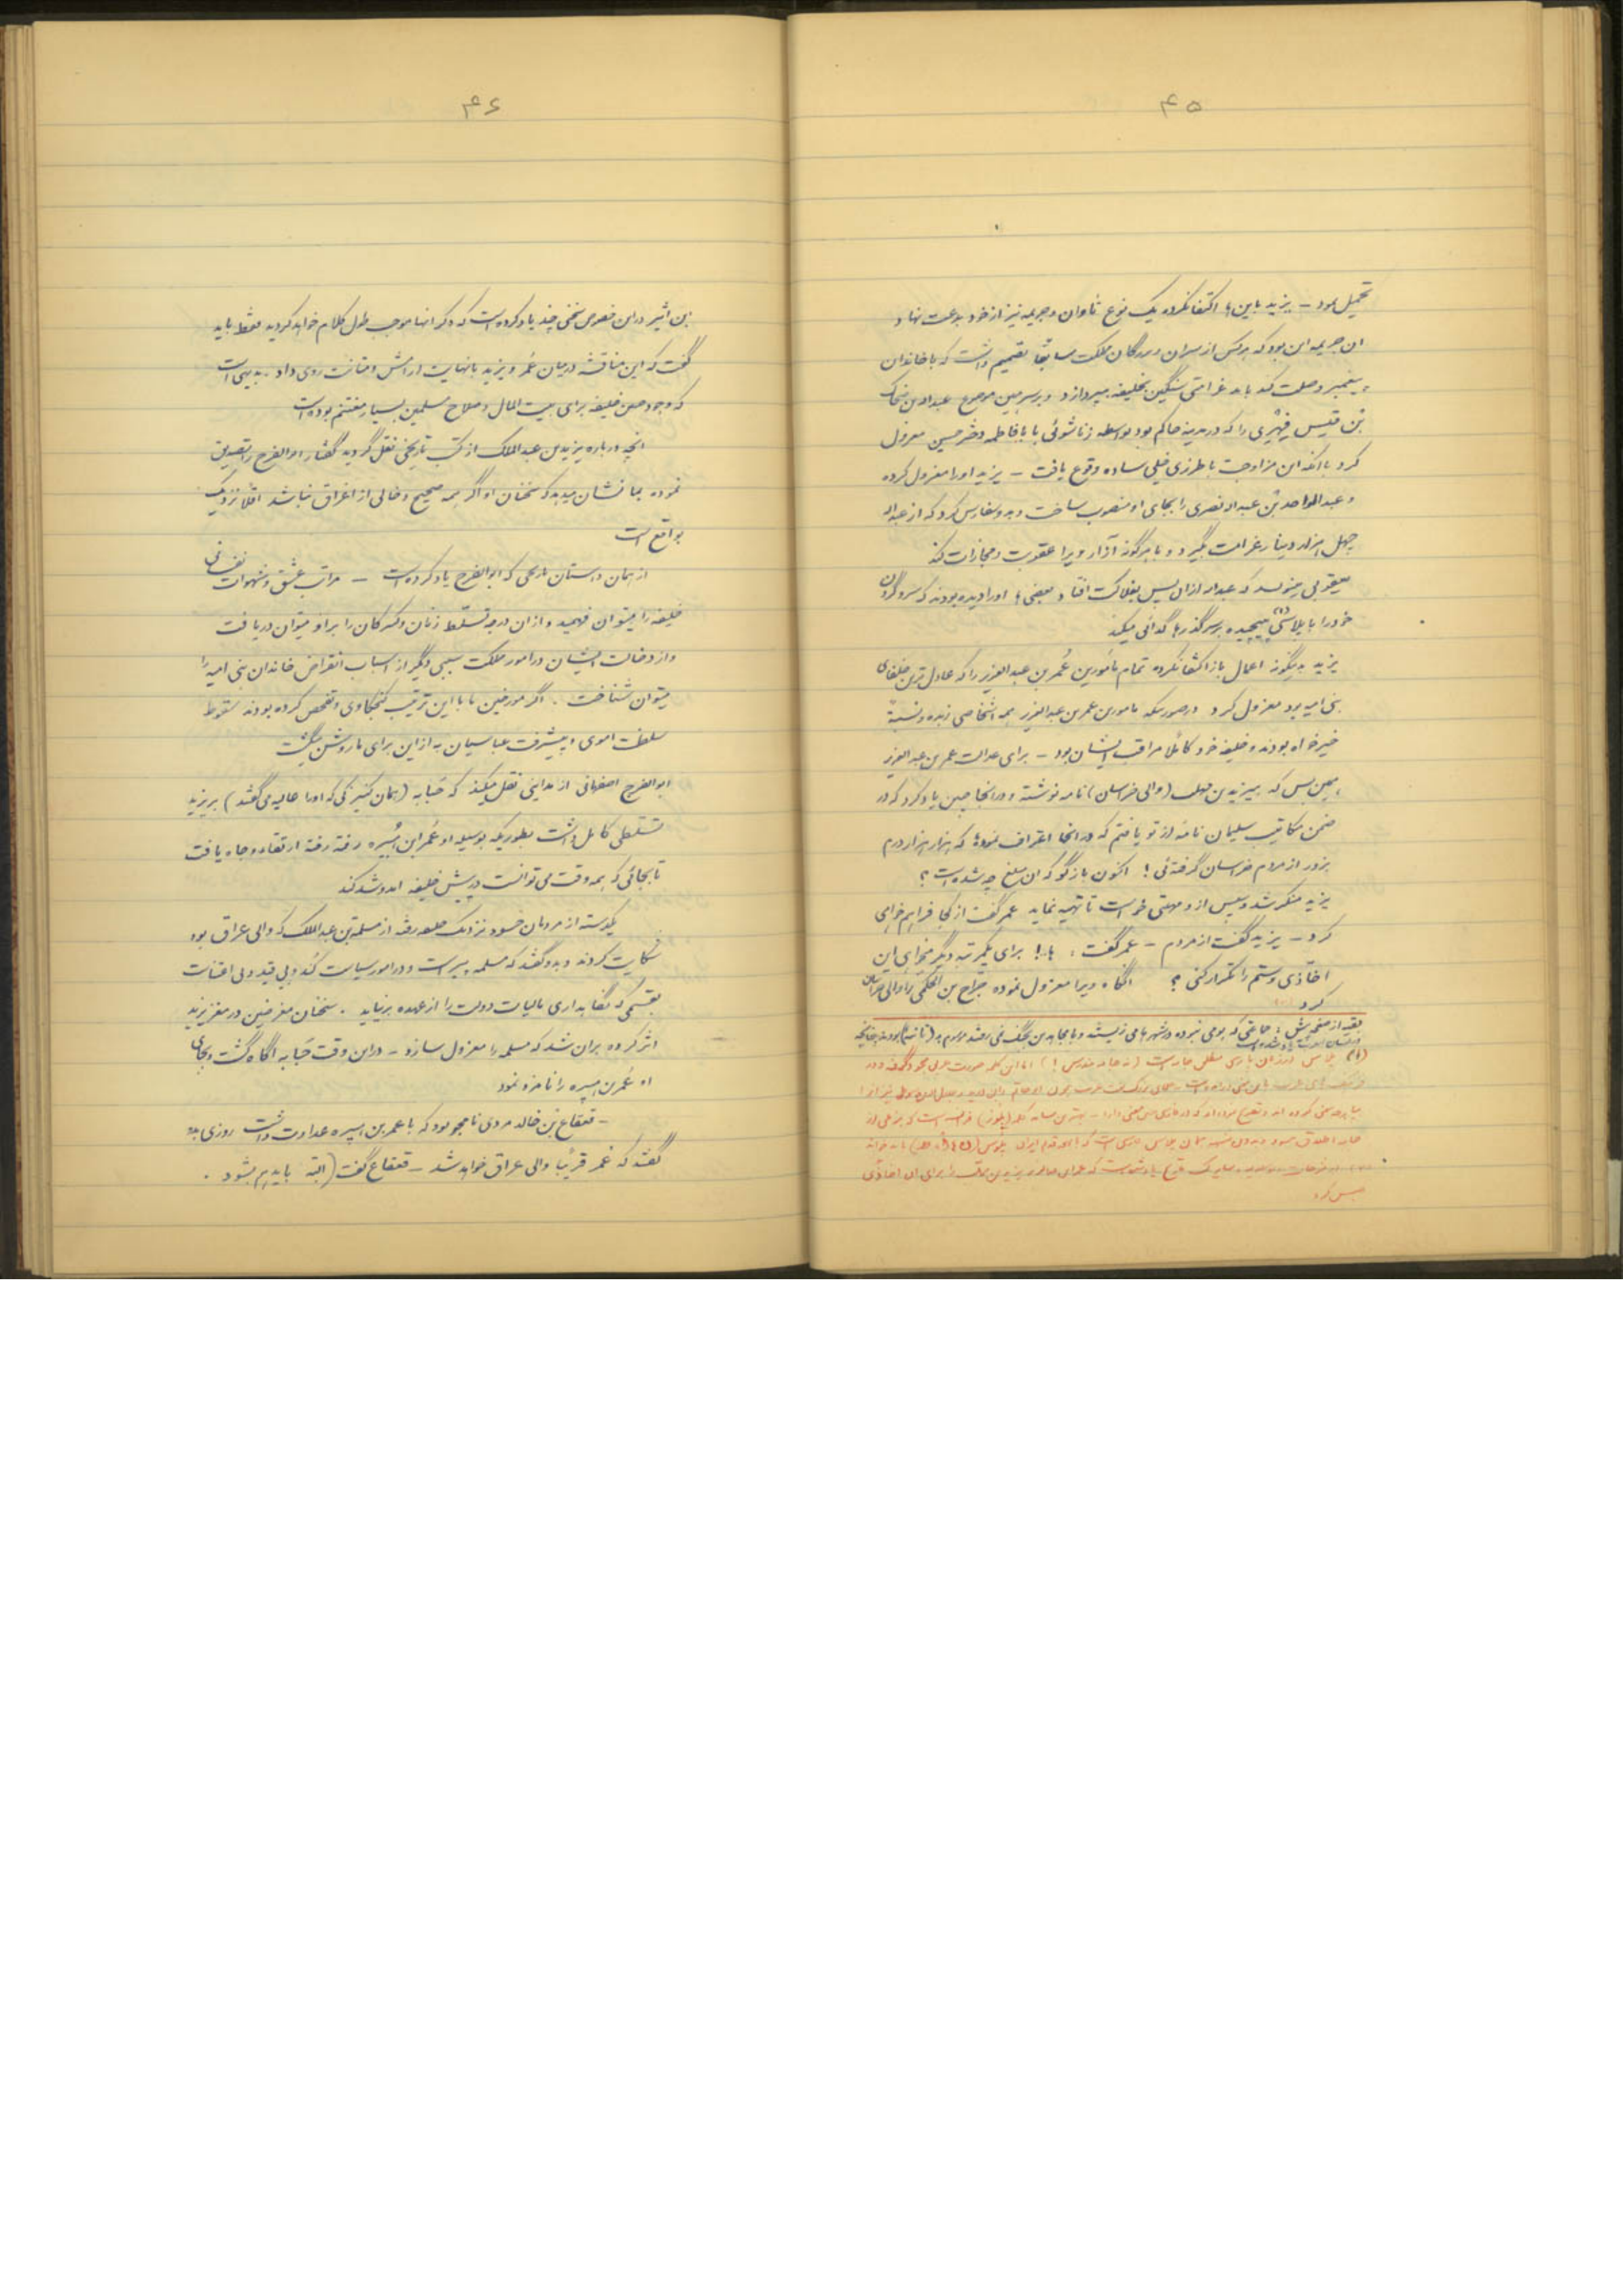 ۴۵
تحمیل نمود – یزید باین ها اکتفا نکرده یک نوع تاوان و جریمه نیز از خود بدعت نهاد و
ان جریمه این بود که هر کس از سران و بزرگان مملکت سابقا تصمیم داشت که با خاندان
پیغمبر وصلت کند باید غرامتی سنگین بخلیفه بپردازد و بر سر همین موضوع عبداله بن ضحاک
بن قیس فهری را که در مدینه حاکم بود بواسطه زناشوئی با فاطمه دختر حسین معزول
کرد با انکه این مزاوجت با طرزی خیلی ساده وقوع یافت – یزید او را معزول کرده
و عبدالواحد بن عبداله نصری را بجای او منصوب ساخت و بدو سفارش کرد که از عبداله
چهل هزار دینار غرامت بگیرد و با هرگونه آزار ویرا عقوبت و مجازات کند
یعقوبی مینویسد که عبداله ازان پس بفلاکت افتاد و بعضی ها او را دیده بودند که سر و گردن
خود را با پلاسی (۱) پیچیده بر سر گذرها گدائی میکند
یزید بدینگونه اعمال باز اکتفا نکرده تمام مأمورین عُمر بن عبدالعزیز را که عادل ترین خلفای
بنی امیه بود معزول کرد در صورتیکه مامورین عمر بن عبدالعزیز همه اشخاصی زبده و نسبةً
خیرخواه بودند و خلیفه خود کاملا مراقب ایشان بود – برای عدالت عمر بن عبدالعزیز
همین بس که بیزید بن مهلب (والی خراسان) نامه نوشته و در انجا چنین یاد کرد که در
ضمن مکاتیب سلیمان نامهٔ از تو یافتم که در انجا اعتراف نموده که هزار هزار درم
بزور از مردم خراسان گرفته‌ئی ! اکنون بازگو که ان مبلغ چه شده است ؟
یزید منکر شد و سپس از و مهلتی خواست تا تهیه نماید عمر گفت از کجا فراهم خواهی
کرد – یزید گفت از مردم – عمر گفت ، ها ! برای یکمرتبه دیگر میخواهی این
اخّاذی و ستم را تکرار کنی ؟ انگاه ویرا معزول نموده جرّاح بن الحکمی را والی خراسان
کرد
بقیه از صفحه پیش : جماعتی که بومی نبوده در شهرها می زیستند و با مجاهدین بجنگ نمی رفتند
(۱) پلاس در زبان پارسی
بس کرد
۴۶
ابن اثیر در این خصوص سخنی چند یاد کرده است که ذکر انها موجب طول کلام خواهد گردید فقط باید
گفت که این مناقشه در میان عُمر و یزید با نهایت ارامش و متانت روی داد . بدیهی است
که وجود چنین خلیفه برای بیت المال و صلاح مسلمین بسیار مغتنم بوده است
انچه درباره یزید بن عبدالملک از کتب تاریخی نقل گردید گفتار ابوالفرج را تصدیق
نموده بما نشان میدهد که سخنان او اگر همه صحیح و خالی از اغراق نباشد اقلا نزدیک
بواقع است
از همان داستان تاریخی که ابوالفرج یاد کرده است – مراتب عشق و شهوات نفسانی
خلیفه را میتوان فهمید و از ان درجه تسلط زنان و کنیزکان را بر او میتوان دریافت
و از دخالت ایشان در امور مملکت سببی دیگر از اسباب انقراض خاندان بنی امیه را
میتوان شناخت . اگر مورخین ما با این ترتیب کنجکاوی و تفحص کرده بودند سقوط
سلطنت اموی و پیشرفت عباسیان به از این برای ما روشن میگشت
ابوالفرج اصفهانی از مداینی نقل میکند که حَبابه (همان کنیزکی که او را عالیه می گفتند) بر یزید
تسلطی کامل داشت بطوریکه بوسیله او عُمر ابن هُبیره رفته رفته ارتقاء و جاه یافت
تا بجائی که همه وقت می توانست در پیش خلیفه امد و شد کند
یکدسته از مردمان حسود نزدیک خلیفه رفته از مسلمة بن عبدالملک که والی عراق بود
شکایت کردند و بدو گفتند که مسلمه پیر است و در امور سیاست کُند و بی قید و بی اعتنات
بقسمی که نگاهداری مالیات دولت را از عهده برنیاید . سخنان مغرضین در مغز یزید
اثر کرده بران شد که مسلمه را معزول سازد – در این وقت حَبابه اگاه گشت و بجای
او عُمر بن هبیره را نامزد نمود
– قعقاع بن خالد مردی نامجو بود که با عمر بن هبیره عداوت داشت روزی بدو
گفتند که عُمر قریبًا والی عراق خواهد شد – قعقاع گفت (البته باید هم بشود .